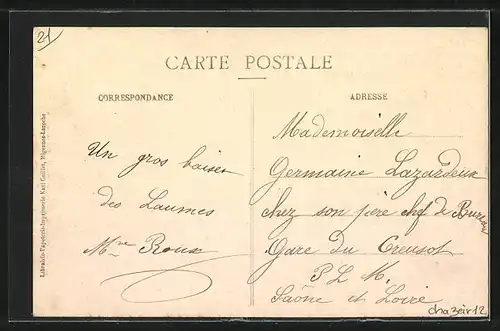 21
CARTE POSTALE
CORRESPONDANCE
ADRESSE
Un gros baiser
des Laumes
Mme Roux
Mademoiselle
Germaine Lazardeux
chez son père chef de Bureau
Gare du Creusot
P L M.
Saône et Loire
Librairie-Papeterie-Imprimerie Karl Guillot, Migennes-Laroche
chazeir12